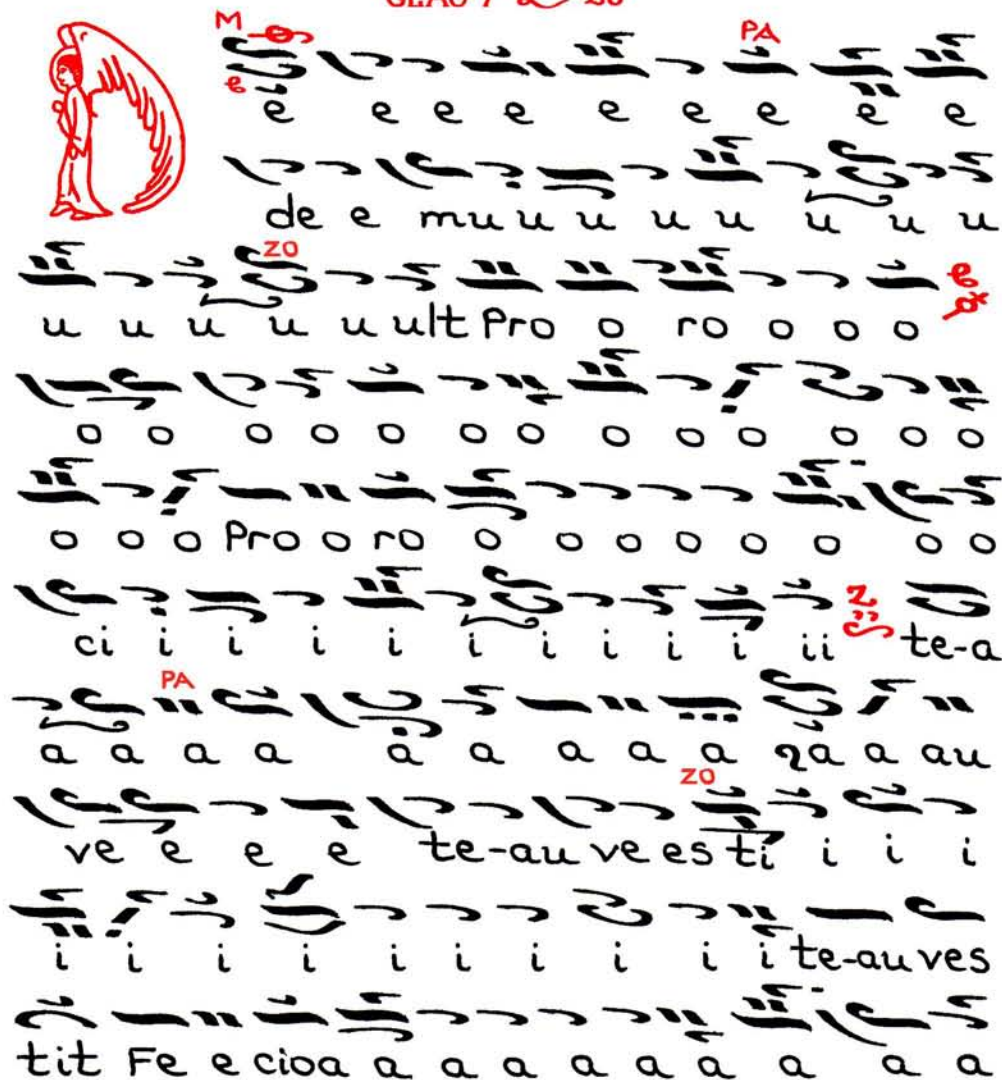 M PA
e e e e e e e e e
de e mu u u u u u u u
ZO
u u u u u ult Pro o ro o o o
o o o o o o o o o o o o o
o o o Pro o ro o o o o o o o o
ci i i i i i i i i ii te-a
PA
a a a a a a a a a a a au
ZO
ve e e e te-au ve es ti i i i
i i i i i i i i i i te-au ves
tit Fe e cioa a a a a a a a a